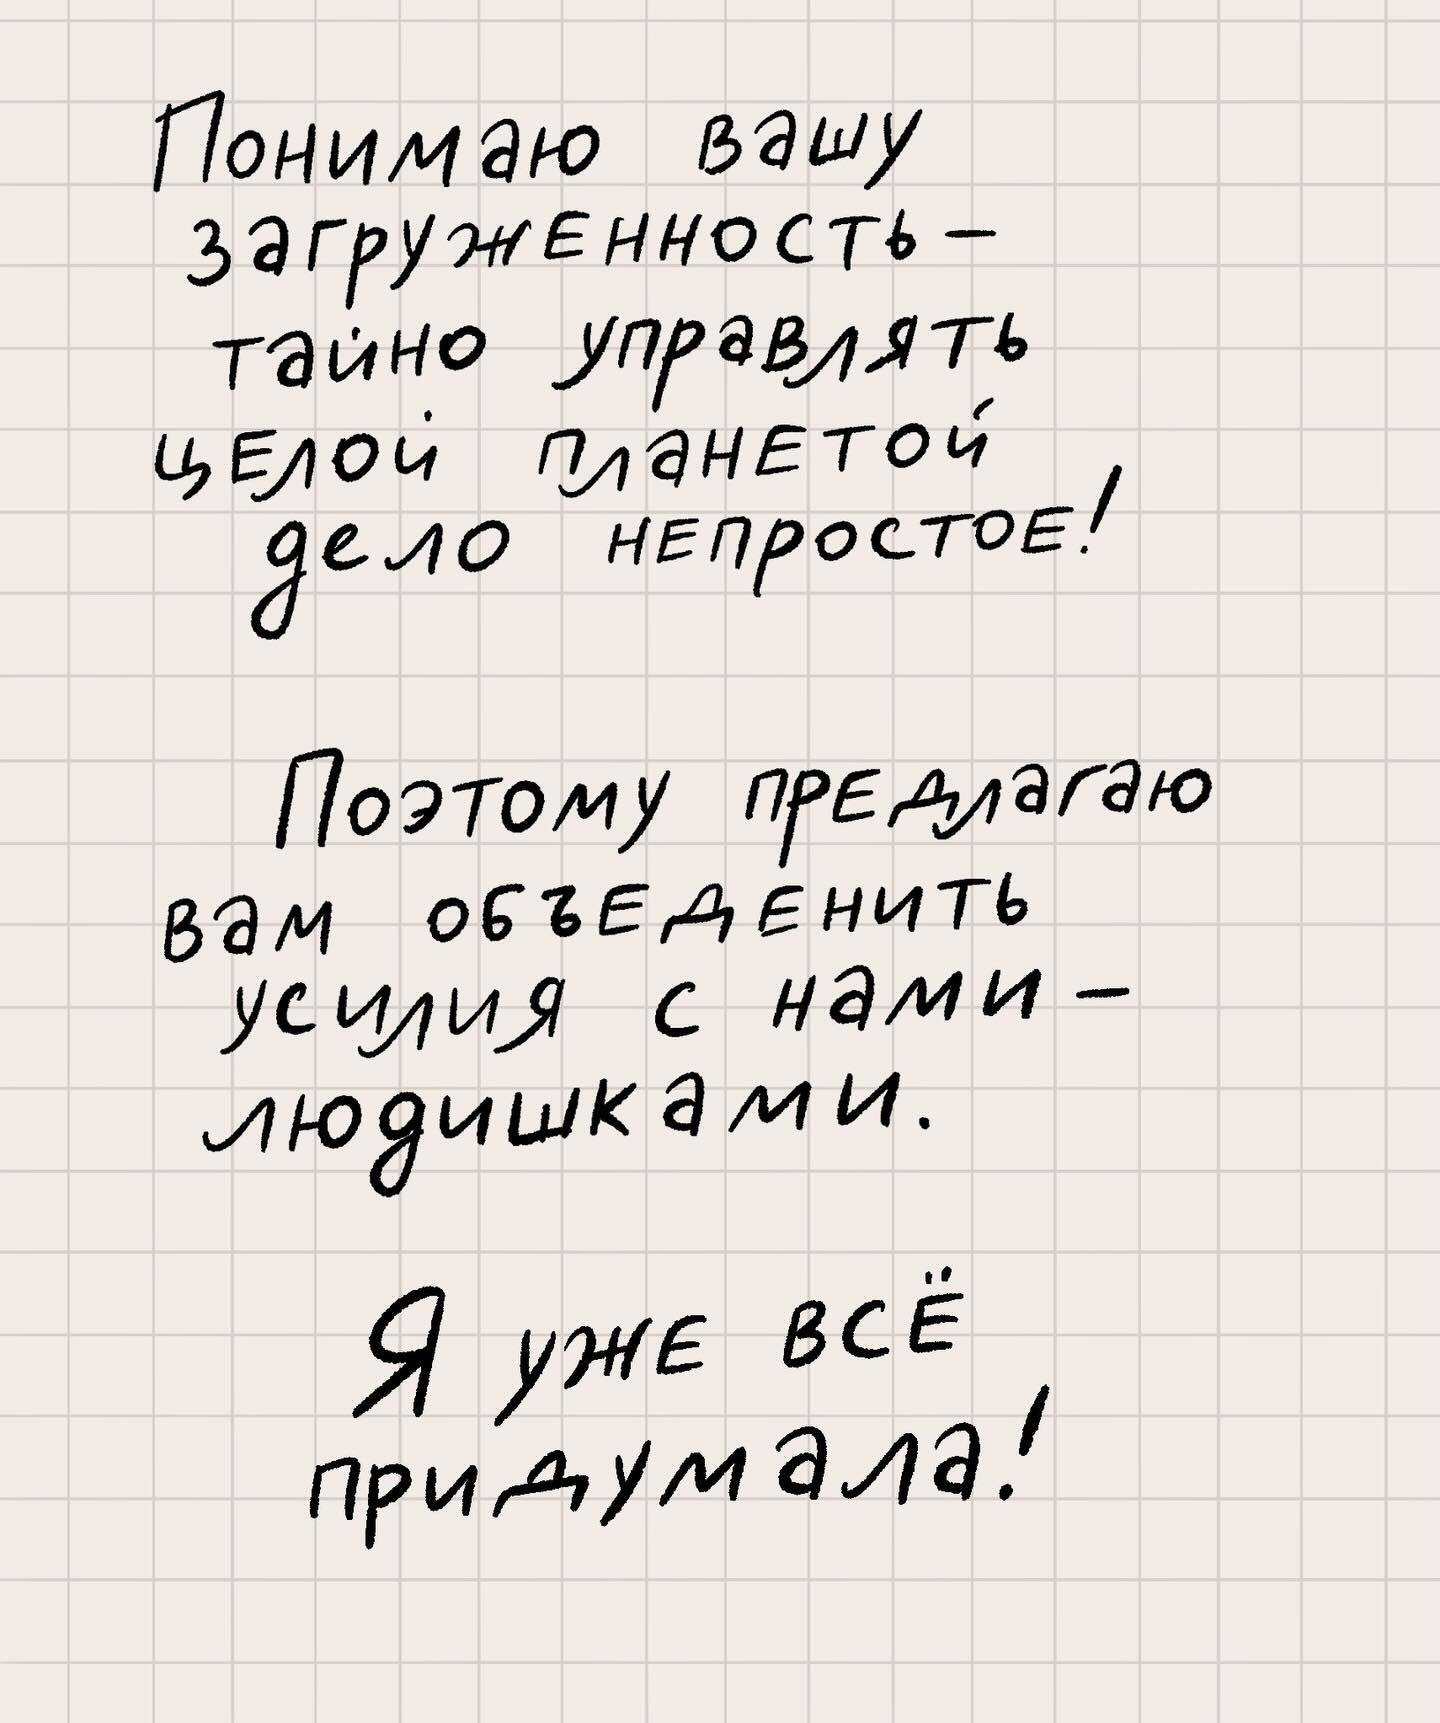 Понимаю вашу
загруженность –
тайно управлять
целой планетой
дело непростое!
Поэтому предлагаю
вам объеденить
усилия с нами –
людишками.
Я уже всё
придумала!